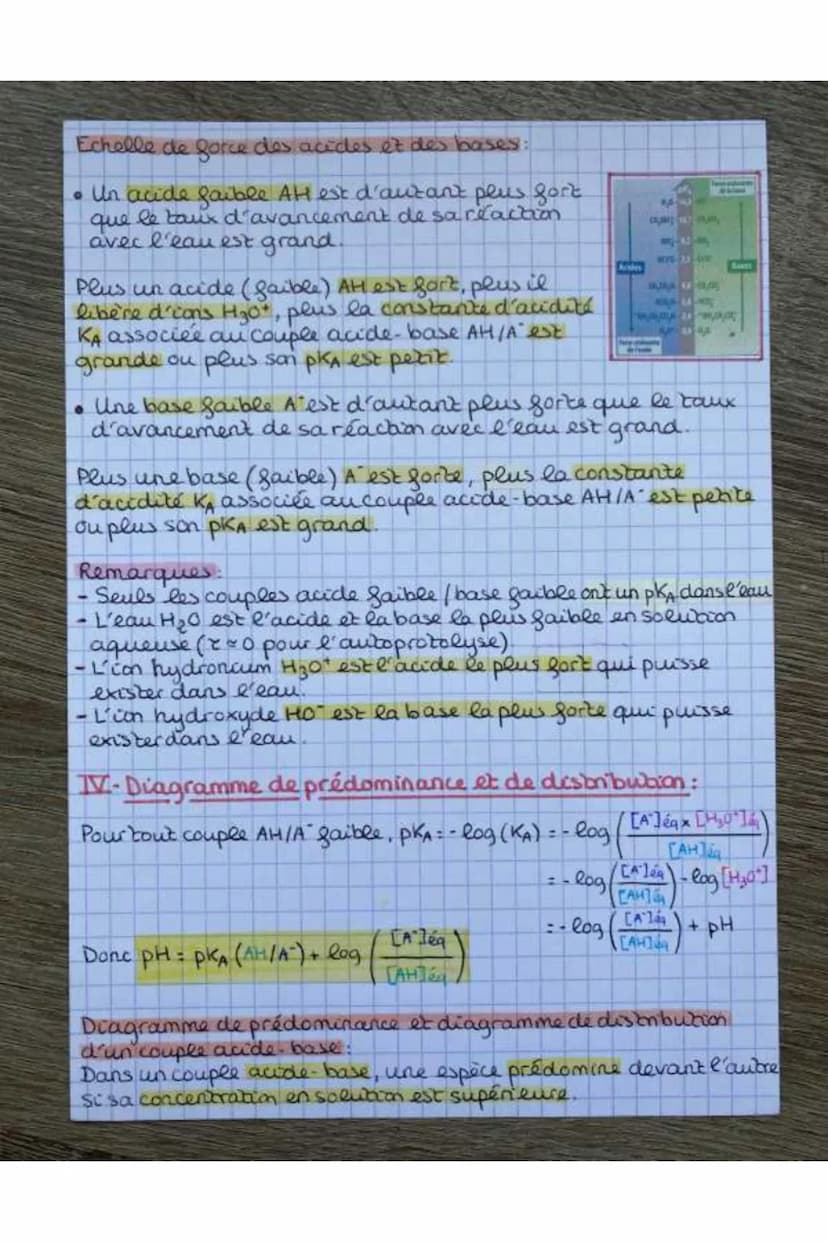 Echelle de force des acides et des bases :
• Un acide faible AH est d'autant plus fort
que le taux d'avancement de sa réaction
avec l'eau est grand.
Plus un acide (faible) AH est fort, plus il
libère d'ions H₃O⁺, plus la constante d'acidité
K_A associée au couple acide-base AH/A⁻ est
grande ou plus son pK_A est petit.
Acides
Bases
• Une base faible A⁻ est d'autant plus forte que le taux
d'avancement de sa réaction avec l'eau est grand.
Plus une base (faible) A⁻ est forte, plus la constante
d'acidité K_A associée au couple acide-base AH/A⁻ est petite
ou plus son pK_A est grand.
Remarques :
- Seuls les couples acide faible / base faible ont un pK_A dans l'eau
- L'eau H₂O est l'acide et la base la plus faible en solution
aqueuse (τ ≈ 0 pour l'autoprotolyse)
- L'ion hydronium H₃O⁺ est l'acide le plus fort qui puisse
exister dans l'eau.
- L'ion hydroxyde HO⁻ est la base la plus forte qui puisse
exister dans l'eau.
IV- Diagramme de prédominance et de distribution :
Pour tout couple AH/A⁻ faible, pK_A = - log (K_A) = - log ([A⁻]éq × [H₃O⁺]éq / [AH]éq)
= - log ([A⁻]éq / [AH]éq) - log [H₃O⁺]
= - log ([A⁻]éq / [AH]éq) + pH
Donc pH = pK_A (AH/A⁻) + log ([A⁻]éq / [AH]éq)
Diagramme de prédominance et diagramme de distribution
d'un couple acide-base :
Dans un couple acide-base, une espèce prédomine devant l'autre
si sa concentration en solution est supérieure.